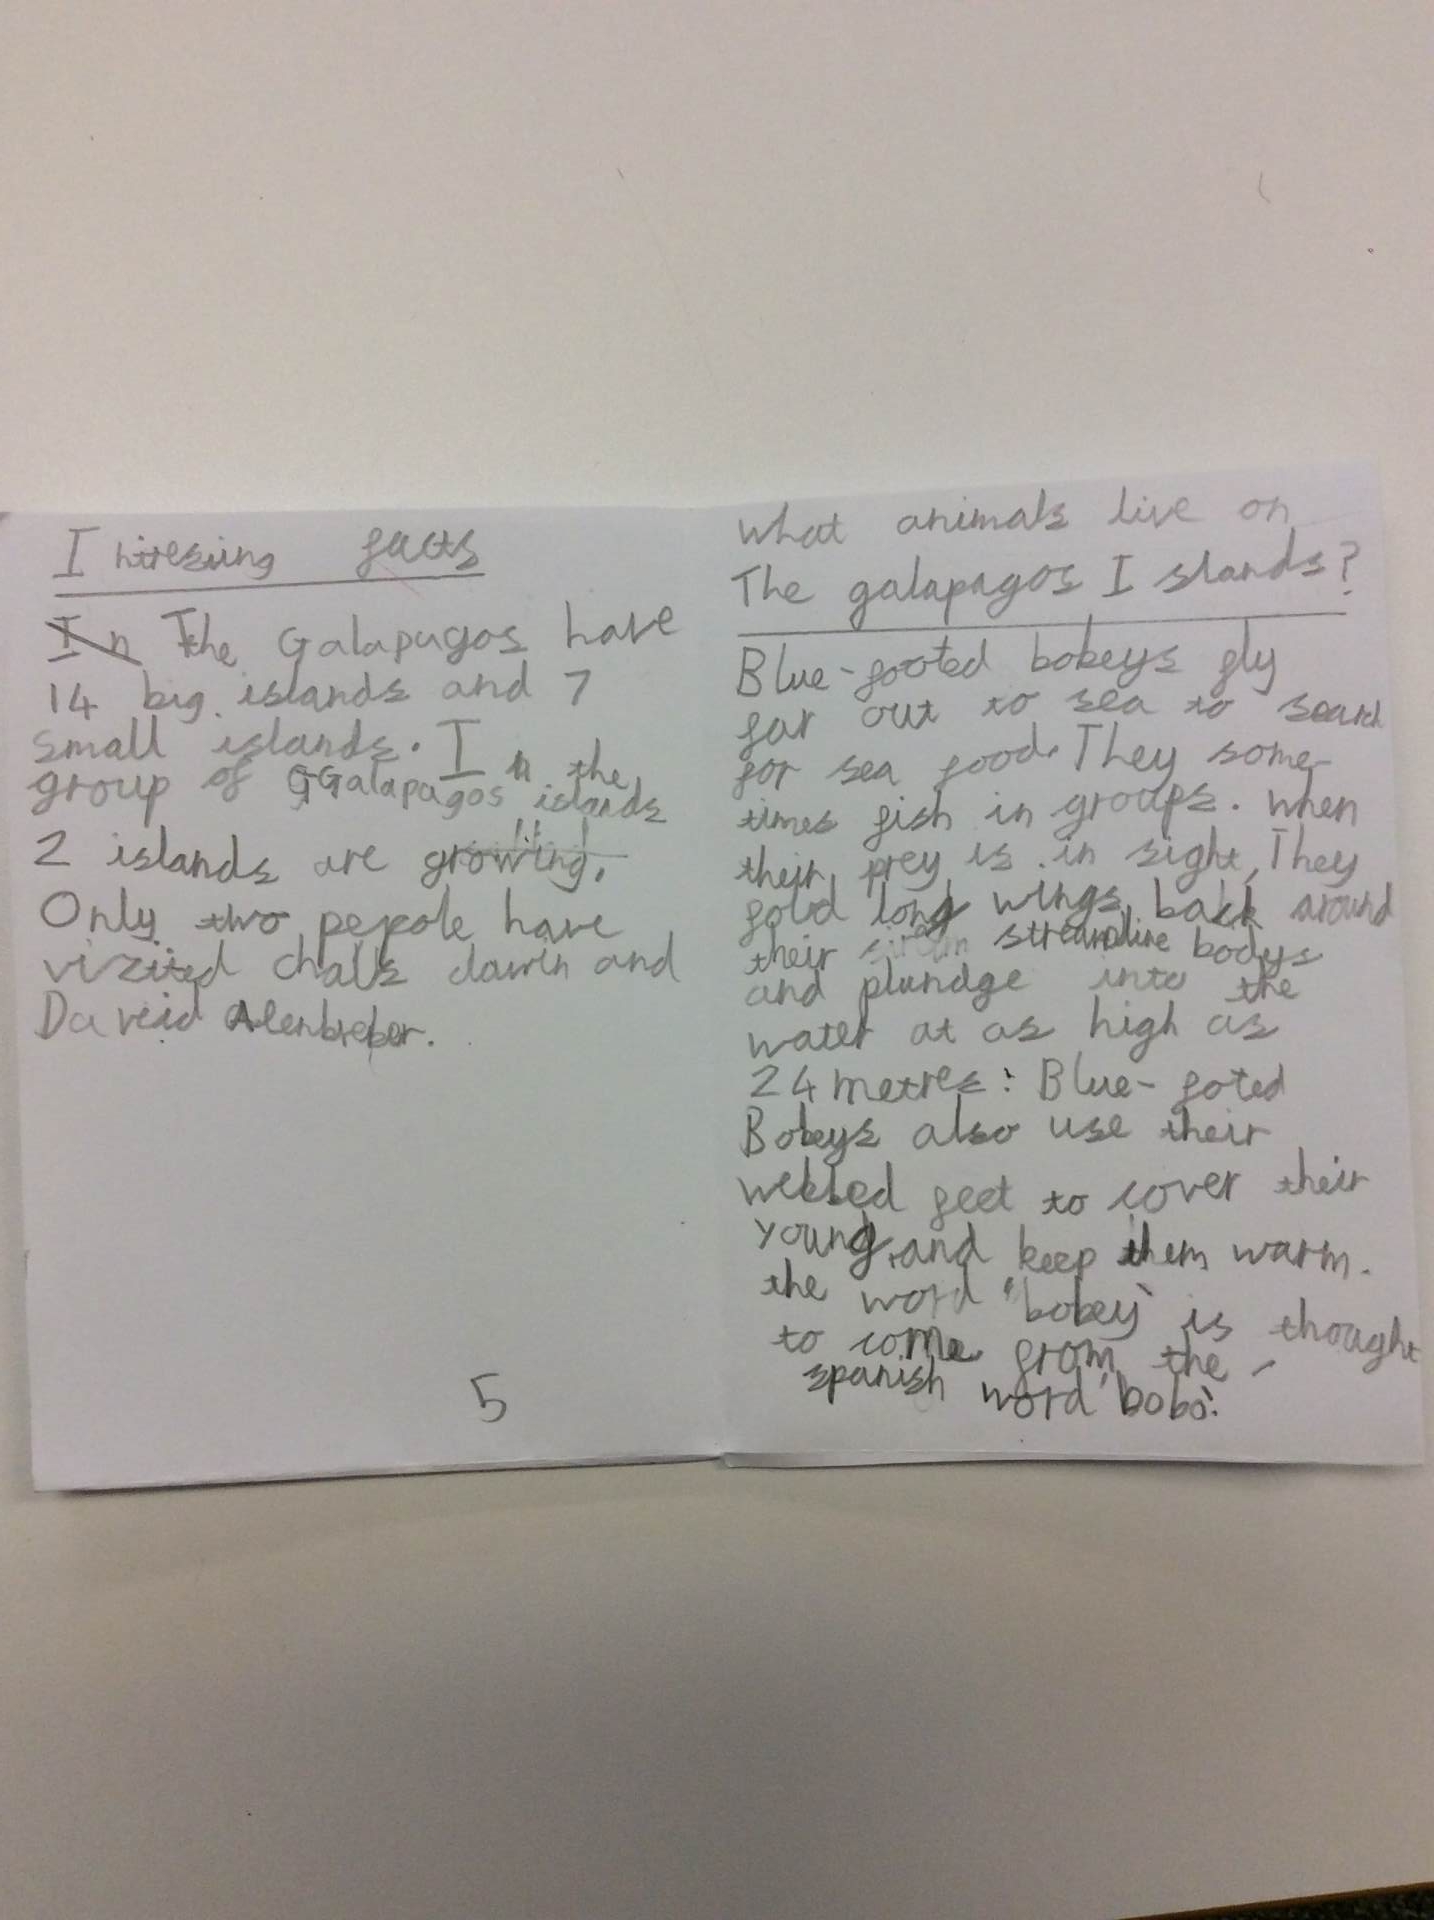 Intresiing facts
In The Galapagos have
14 big islands and 7
small islands. In the
group of GGalapagos islands
2 islands are growing.
Only two pepole have
vizited chals dawin and
Daveid Alenbrebor.
5
What animals live on
The galapagos Islands?
Blue-footed bobeys fly
far out to sea to search
for sea food. They some-
times fish in groups. When
their prey is in sight, They
fold long wings back around
their streamline bodys
and plundge into the
water at as high as
24 metres: Blue-foted
Bobeys also use their
webbed feet to cover their
young, and keep them warm.
the word 'bobey' is thought
to come from the
spanish word 'bobo'.